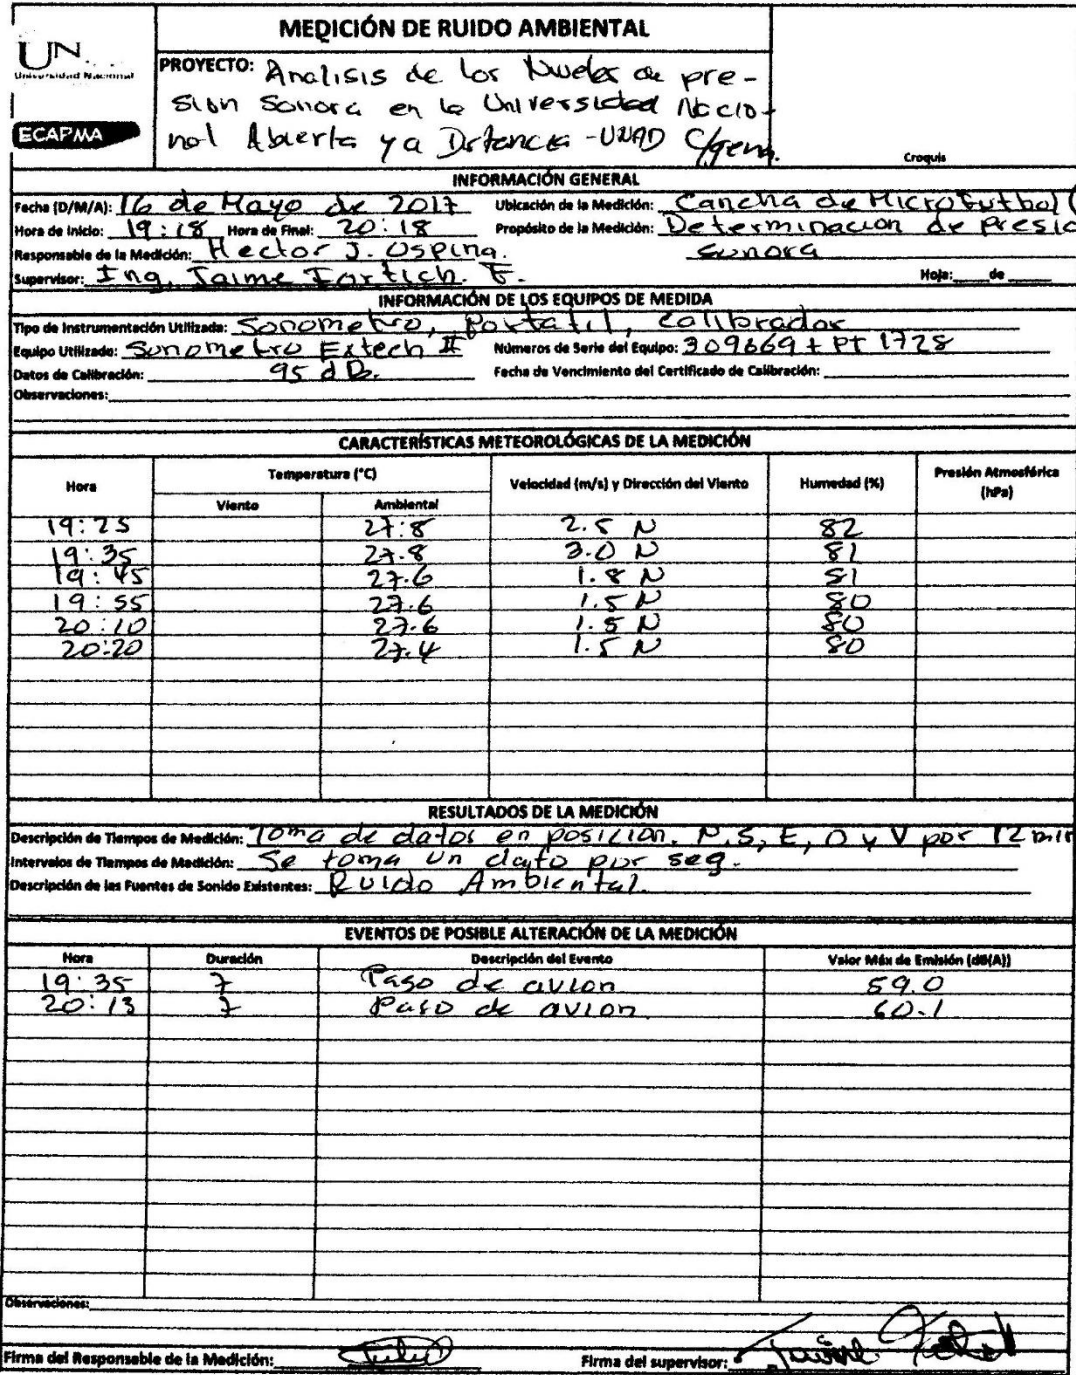 MEDICIÓN DE RUIDO AMBIENTAL
UN
Universidad Nacional
ECAPMA
PROYECTO: Analisis de los Niveles de pre-
sión Sonora en la Universidad Nacio-
nal Abierta y a Distancia - UNAD C/gena.
Croquis
INFORMACIÓN GENERAL
Fecha (D/M/A): 16 de Mayo de 2017 Ubicación de la Medición: Cancha de Microfutbol (
Hora de Inicio: 19:18 Hora de Final: 20:18 Propósito de la Medición: Determinacion de Presio
Responsable de la Medición: Hector J. Ospina. sonora
Supervisor: Ing. Jaime Fortich. F. Hoja: de
INFORMACIÓN DE LOS EQUIPOS DE MEDIDA
Tipo de Instrumentación Utilizada: Sonometro, Portatil, Calibrador
Equipo Utilizado: Sonometro Extech II Números de Serie del Equipo: 309669 + PT 1728
Datos de Calibración: 95 dB. Fecha de Vencimiento del Certificado de Calibración:
Observaciones:
CARACTERÍSTICAS METEOROLÓGICAS DE LA MEDICIÓN
Hora Temperatura (°C) Velocidad (m/s) y Dirección del Viento Humedad (%) Presión Atmosférica (hPa)
Viento Ambiental
19:25 27.8 2.5 N 82
19:35 27.8 3.0 N 81
19:45 27.6 1.8 N 81
19:55 27.6 1.5 N 80
20:10 27.6 1.5 N 80
20:20 27.4 1.5 N 80
RESULTADOS DE LA MEDICIÓN
Descripción de Tiempos de Medición: Toma de datos en posición. N, S, E, O y V por 12 min
Intervalos de Tiempos de Medición: Se toma un dato por seg.
Descripción de las Fuentes de Sonido Existentes: Ruido Ambiental.
EVENTOS DE POSIBLE ALTERACIÓN DE LA MEDICIÓN
Hora Duración Descripción del Evento Valor Máx de Emisión (dB(A))
19:35 7 Paso de avion 59.0
20:13 7 Paso de avion 60.1
Observaciones:
Firma del Responsable de la Medición: Firma del supervisor: Jaime